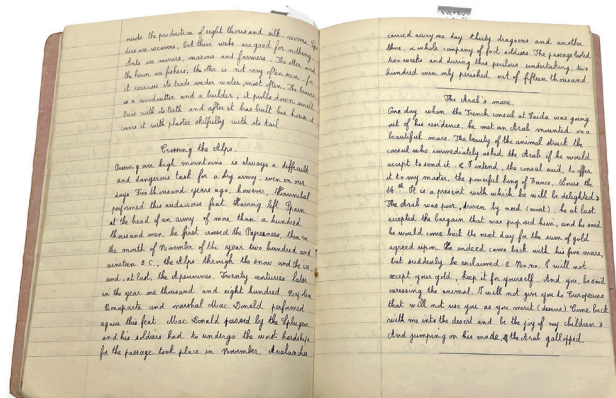 needs the production of eight thousand silk-worms. Spi
ders are weavers, but their webs are good for nothing.
Ants are miners, masons and farmers. The otter and
the heron are fishers; the otter is not very often seen for
it exercises its trade under water, most often. The beaver
is a woodcutter and a builder; it pulls down small
trees with its teeth and after it has built his house it
covers it with plaster skilfully with its tail
Crossing the Alps.
Passing over high mountains is always a difficult
and dangerous task for a big army, even in our
days. Two thousand years ago, however, Hannibal
performed this audacious feat. Having left Spain
at the head of an army of more than a hundred
thousand men, he first crossed the Pyrenees, then in
the month of November of the year two hundred and
nineteen B.C., the Alps through the snow and the ice,
and, at last, the Apennines. Twenty centuries later,
in the year one thousand and eight hundred,
Bonaparte and marshal Mac Donald performed
again this feat. Mac Donald passed by the Splugen
and his soldiers had to undergo the worst hardships
for the passage took place in November. Avalanches
carried away one day thirty dragoons and another
three, a whole company of foot soldiers. The passage lasted
two weeks and during this perilous undertaking, two
hundred men only perished out of fifteen thousand.
The Arab's mare.
One day, when the French consul at Saida was going
out of his residence, he met an Arab mounted on a
beautiful mare. The beauty of the animal struck the
consul who immediately asked the Arab if he would
accept to send it. « I intend, the consul said, to offer
it to my master, the powerful king of France, Louis the
14th. It is a present with which he will be delighted. »
The Arab was poor, driven by need (want), he at last
accepted the bargain that was proposed him, and he said
he would come but the next day for the sum of gold
agreed upon. He indeed came back with his fine mare,
but suddenly he exclaimed: « No no. I will not
accept your gold, keep it for yourself. And you, he said
caressing the animal. I will not give you to Europeans
that will not use you as you merit (deserve) Come back
with me into the desert and be the joy of my children. »
And jumping on his made, the Arab gallopped